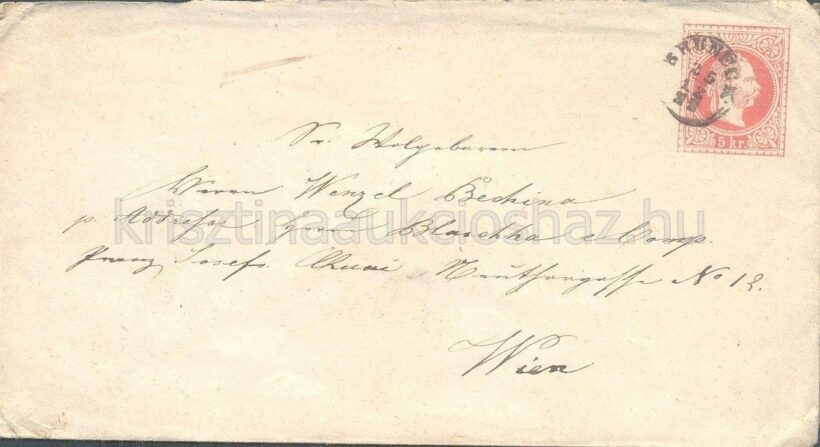 BRUNECK
5 kr.
Sr. Wolgeboren
Herrn Wenzel Bechina
p. Addresse Blaschka & Comp.
Franz Josefs Quai Neuthorgasse No 12.
Wien
krisztinaaukcioshaz.hu